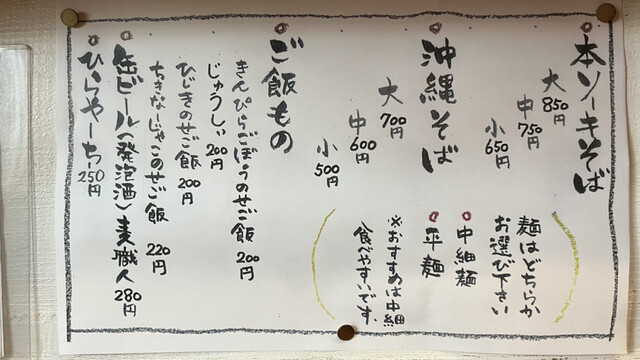 本ソーキそば
大 850円
中 750円
小 650円
麺はどちらか
お選び下さい
中細麺
平麺
※おすすめは中細
食べやすいです
沖縄そば
大 700円
中 600円
小 500円
ご飯もの
きんぴらごぼうのせご飯 200円
じゅうしぃ 200円
ひじきのせご飯 200円
ちきなーじゃこのせご飯 220円
缶ビール(発泡酒)麦職人 280円
ひらやーちー 250円